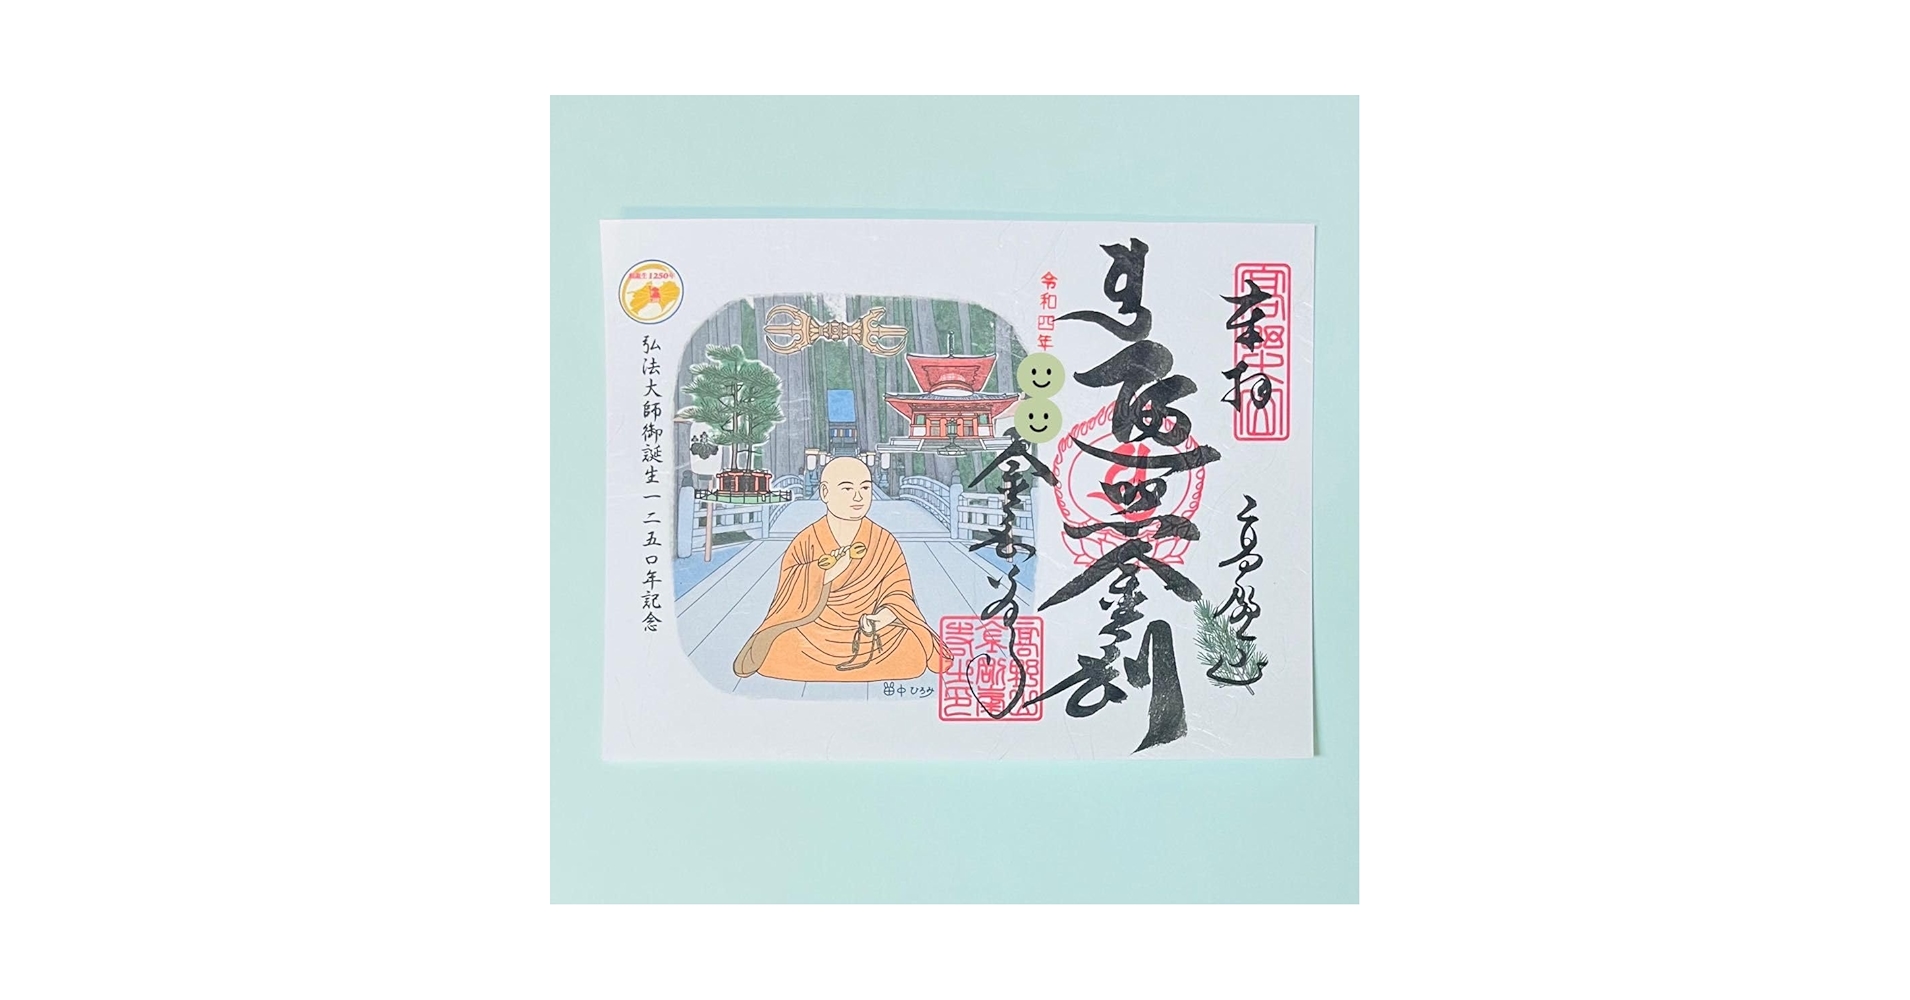 奉拝
高野山
高野山
遍照金剛
令和四年
金剛峯寺
高野山
金剛峯
寺之印
田中ひろみ
御誕生1250年
弘法大師御誕生一二五〇年記念